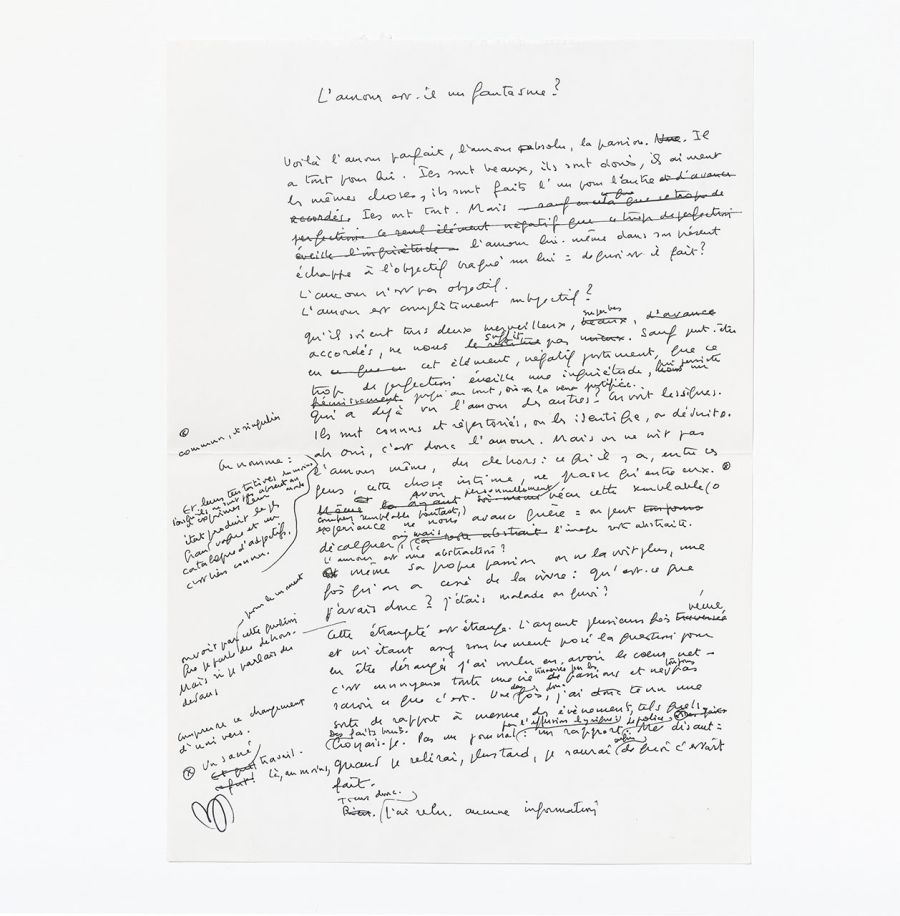 L'amour est-il un fantasme?
Voilà l'amour parfait, l'amour absolu, la passion. Il
a tout pour lui. Ils sont beaux, ils sont doués, ils aiment
les mêmes choses, ils sont faits l'un pour l'autre et d'avance
accordés. Ils ont tout. Mais sauf en cela que ce trop de
perfection ce seul élément négatif que ce trop de perfection
éveille l'inquiétude l'amour lui-même dans son présent
échappe à l'objectif braqué sur lui = de quoi est-il fait?
L'amour n'est pas objectif.
L'amour est complètement subjectif?
superbes
qu'ils soient tous deux merveilleux, beaux, d'avance
suffit
accordés, ne nous pas mieux. Sauf peut-être
en ce que ce cet élément, négatif justement, que ce
trop de perfection éveille une inquiétude,
frémissement jusqu'au bout, où on la verra justifiée.
Qui a déjà vu l'amour des autres? On voit les signes.
Ils sont connus et répertoriés, on les identifie, on déduit.
ah oui, c'est donc l'amour. Mais on ne voit pas
l'amour même, du dehors: ce qu'il y a, entre ces
gens, cette chose intime, ne passe qu'entre eux.
Et Avoir personnellement
même vécu cette semblable (ô
combien semblable pourtant,)
expérience ne nous avance guère = on peut
mais
décalquer, abstrait l'image reste abstraite.
L'amour est une abstraction?
Et même sa propre passion on ne la voit plus, une
fois qu'on a cessé de la vivre: qu'est-ce que
j'avais donc? j'étais malade ou quoi?
vécue
Cette étrangeté est étrange. L'ayant plusieurs fois traversée
et m'étant assez sombrement posé la question pour
en être dérangé j'ai voulu en avoir le cœur net-
c'est ennuyeux toute une vie de passions et ne pas
savoir ce que c'est. Une fois, j'ai donc tenu une
sorte de rapport à mesure des événements, tels quels.
Des faits bruts.
Croyais-je. Pas un journal: un rapport. Me disant=
enfin
Quand je relirai, plus tard, je saurai de quoi c'était
fait.
Tiens donc.
Rien. (J'ai relu. aucune information
commun, et singulier
On nomme:
Et leurs tentatives
catalogue d'adjectifs.
c'est bien connu.
pour le moment
on voit pas cette question
Que je parle du dehors.
Mais si je parlais du
dedans
comme un changement
d'univers.
Un sacré
travail.
Là, au moins,